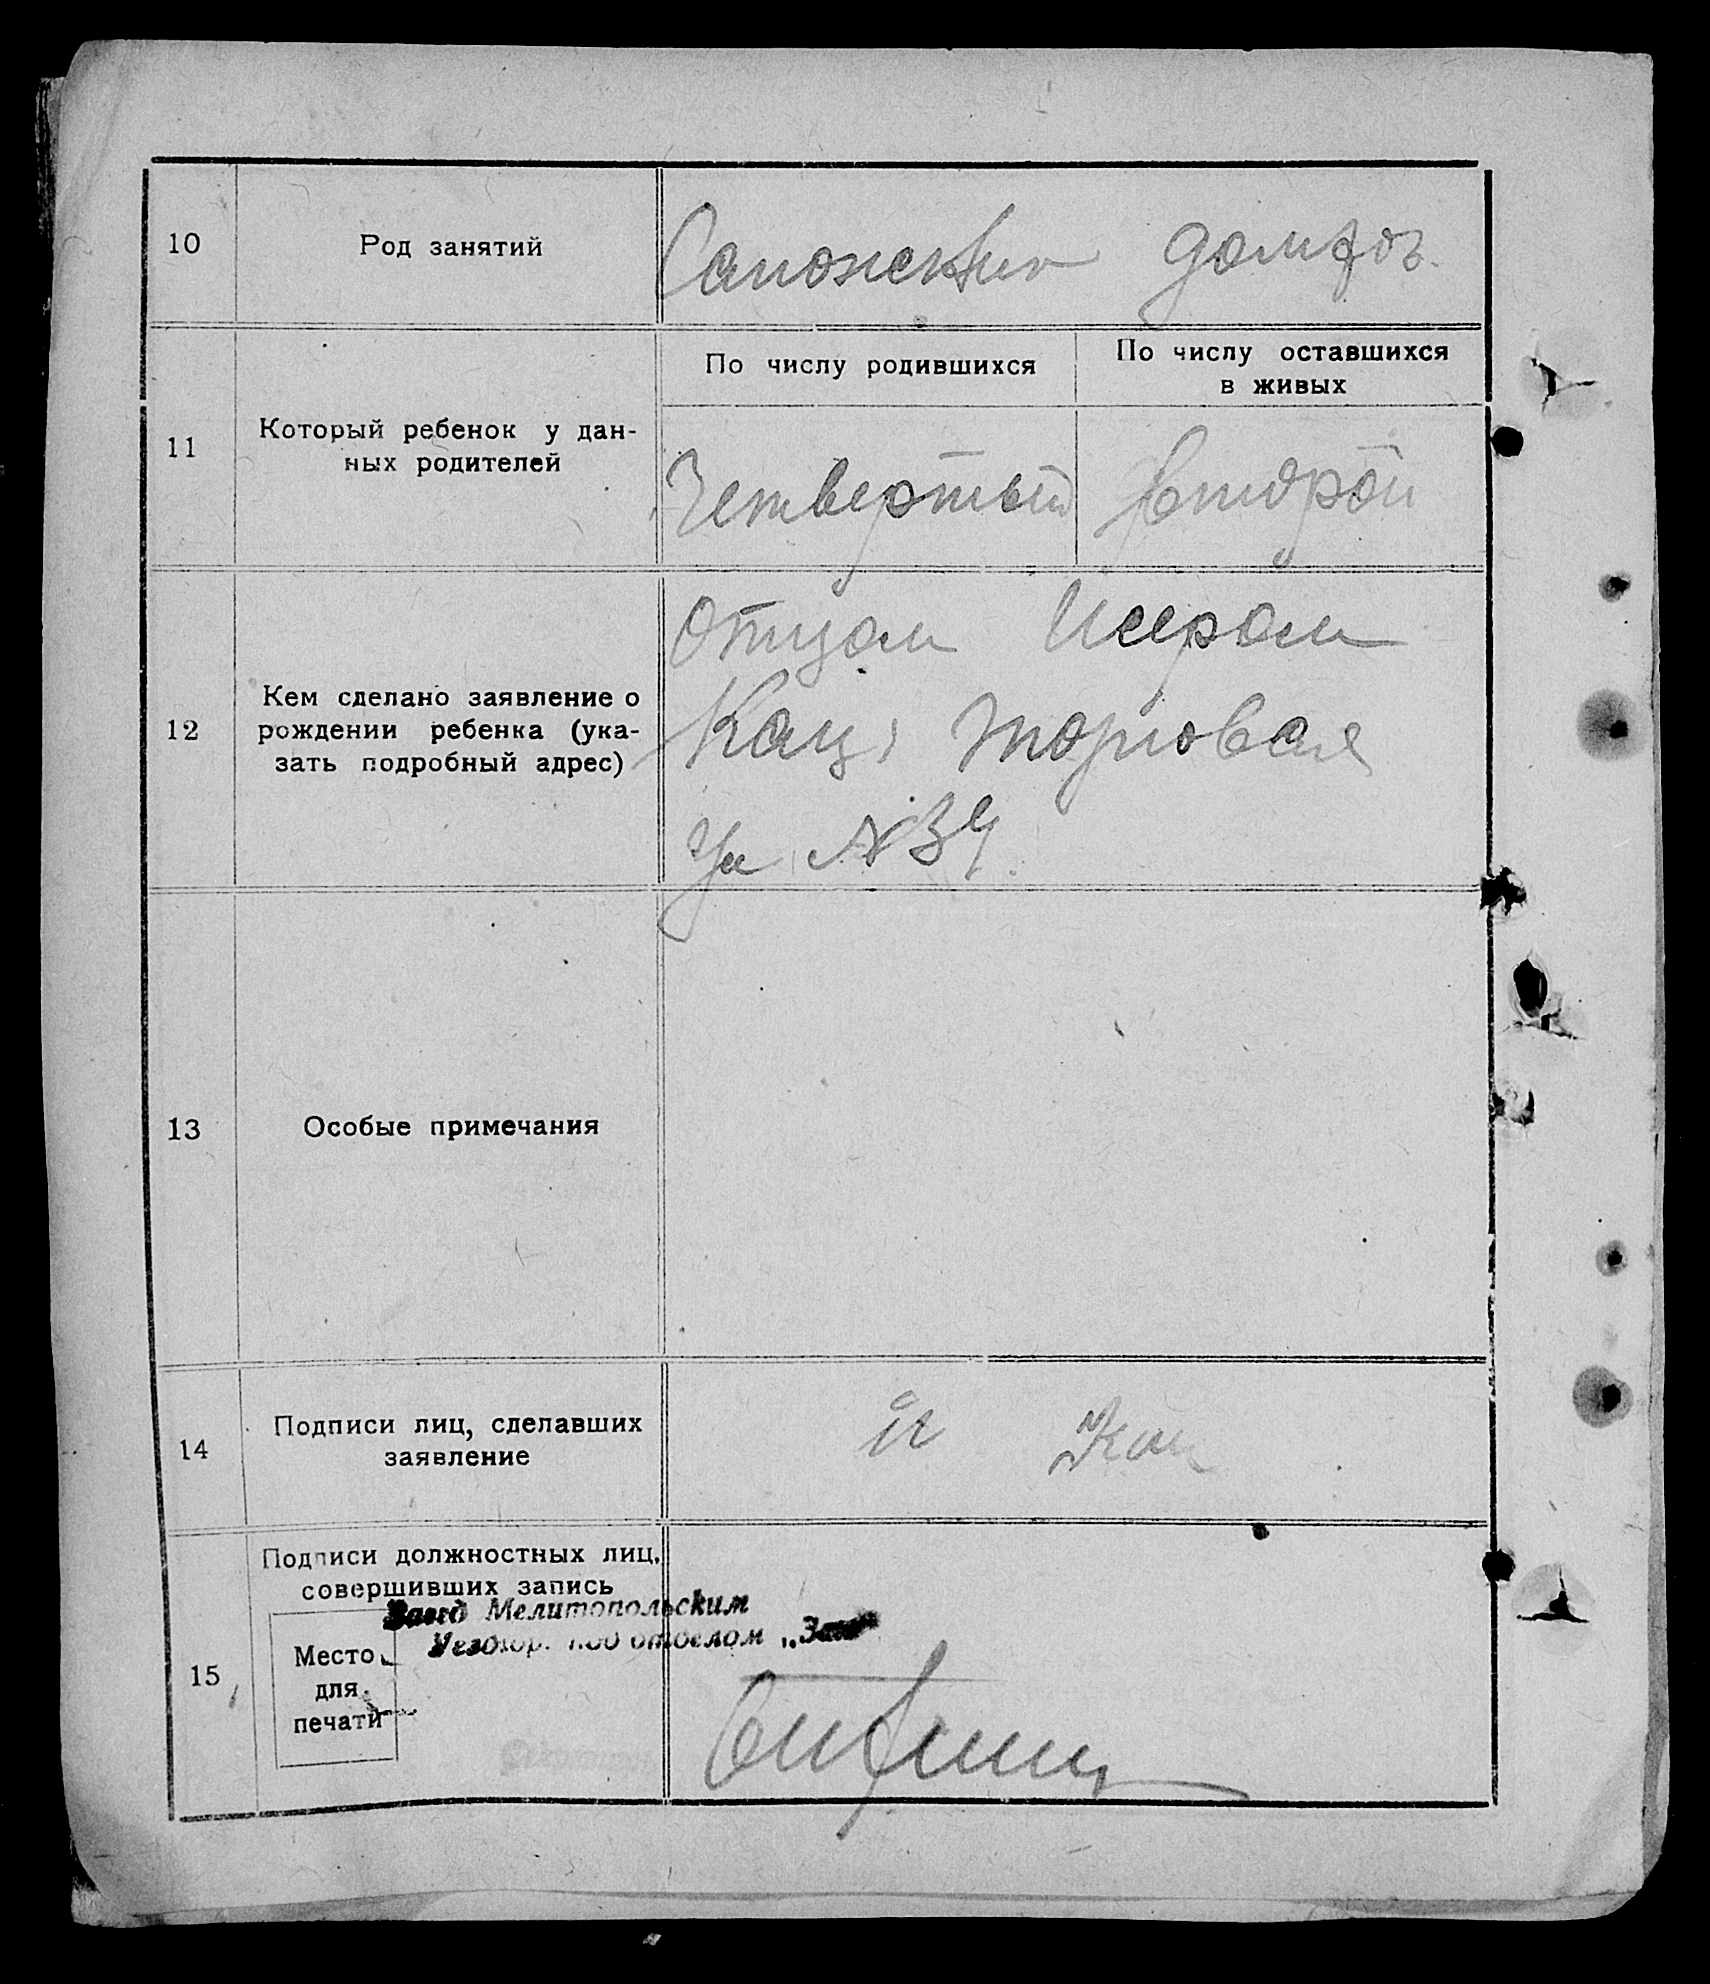 10 Род занятий
домхоз.
11 Который ребенок у дан-
ных родителей
По числу родившихся
По числу оставшихся
в живых
Четвертый второй
12 Кем сделано заявление о
рождении ребенка (ука-
зать подробный адрес)
Отцом Исером
Кац, Торговая
ул №34
13 Особые примечания
14 Подписи лиц, сделавших
заявление
И Кац
15 Подписи должностных лиц,
совершивших запись
Завед Мелитопольским
отделом „Загс
Место
для
печати